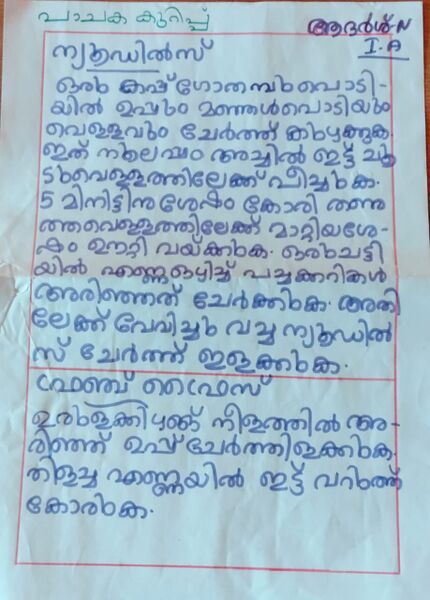 പാചക കുറിപ്പ്
ആദർശ്.N
I.A
ന്യൂഡിൽസ്
ഒരു കപ്പ് ഗോതമ്പുപൊടി-
യിൽ ഉപ്പും മഞ്ഞൾപൊടിയും
വെള്ളവും ചേർത്ത് കുഴക്കുക.
ഇത് സേവ അച്ചിൽ ഇട്ട് ചൂ
ടുവെള്ളത്തിലേക്ക് പീച്ചുക.
5 മിനിട്ടിനുശേഷം കോരി തണു
ത്തവെള്ളത്തിലേക്ക് മാറ്റിയശേ-
ഷം ഊറ്റി വയ്ക്കുക. ഒരുചട്ടി
യിൽ എണ്ണഒഴിച്ച് പച്ചക്കറികൾ
അരിഞ്ഞത് ചേർക്കുക. അതി
ലേക്ക് വേവിച്ചു വച്ച ന്യൂഡിൽ
സ് ചേർത്ത് ഇളക്കുക.
ഫ്രഞ്ച് ഫ്രൈസ്
ഉരുളക്കിഴങ്ങ് നീളത്തിൽ അ-
രിഞ്ഞ് ഉപ്പ് ചേർത്തിളക്കുക.
തിളച്ച എണ്ണയിൽ ഇട്ട് വറുത്ത്
കോരുക.